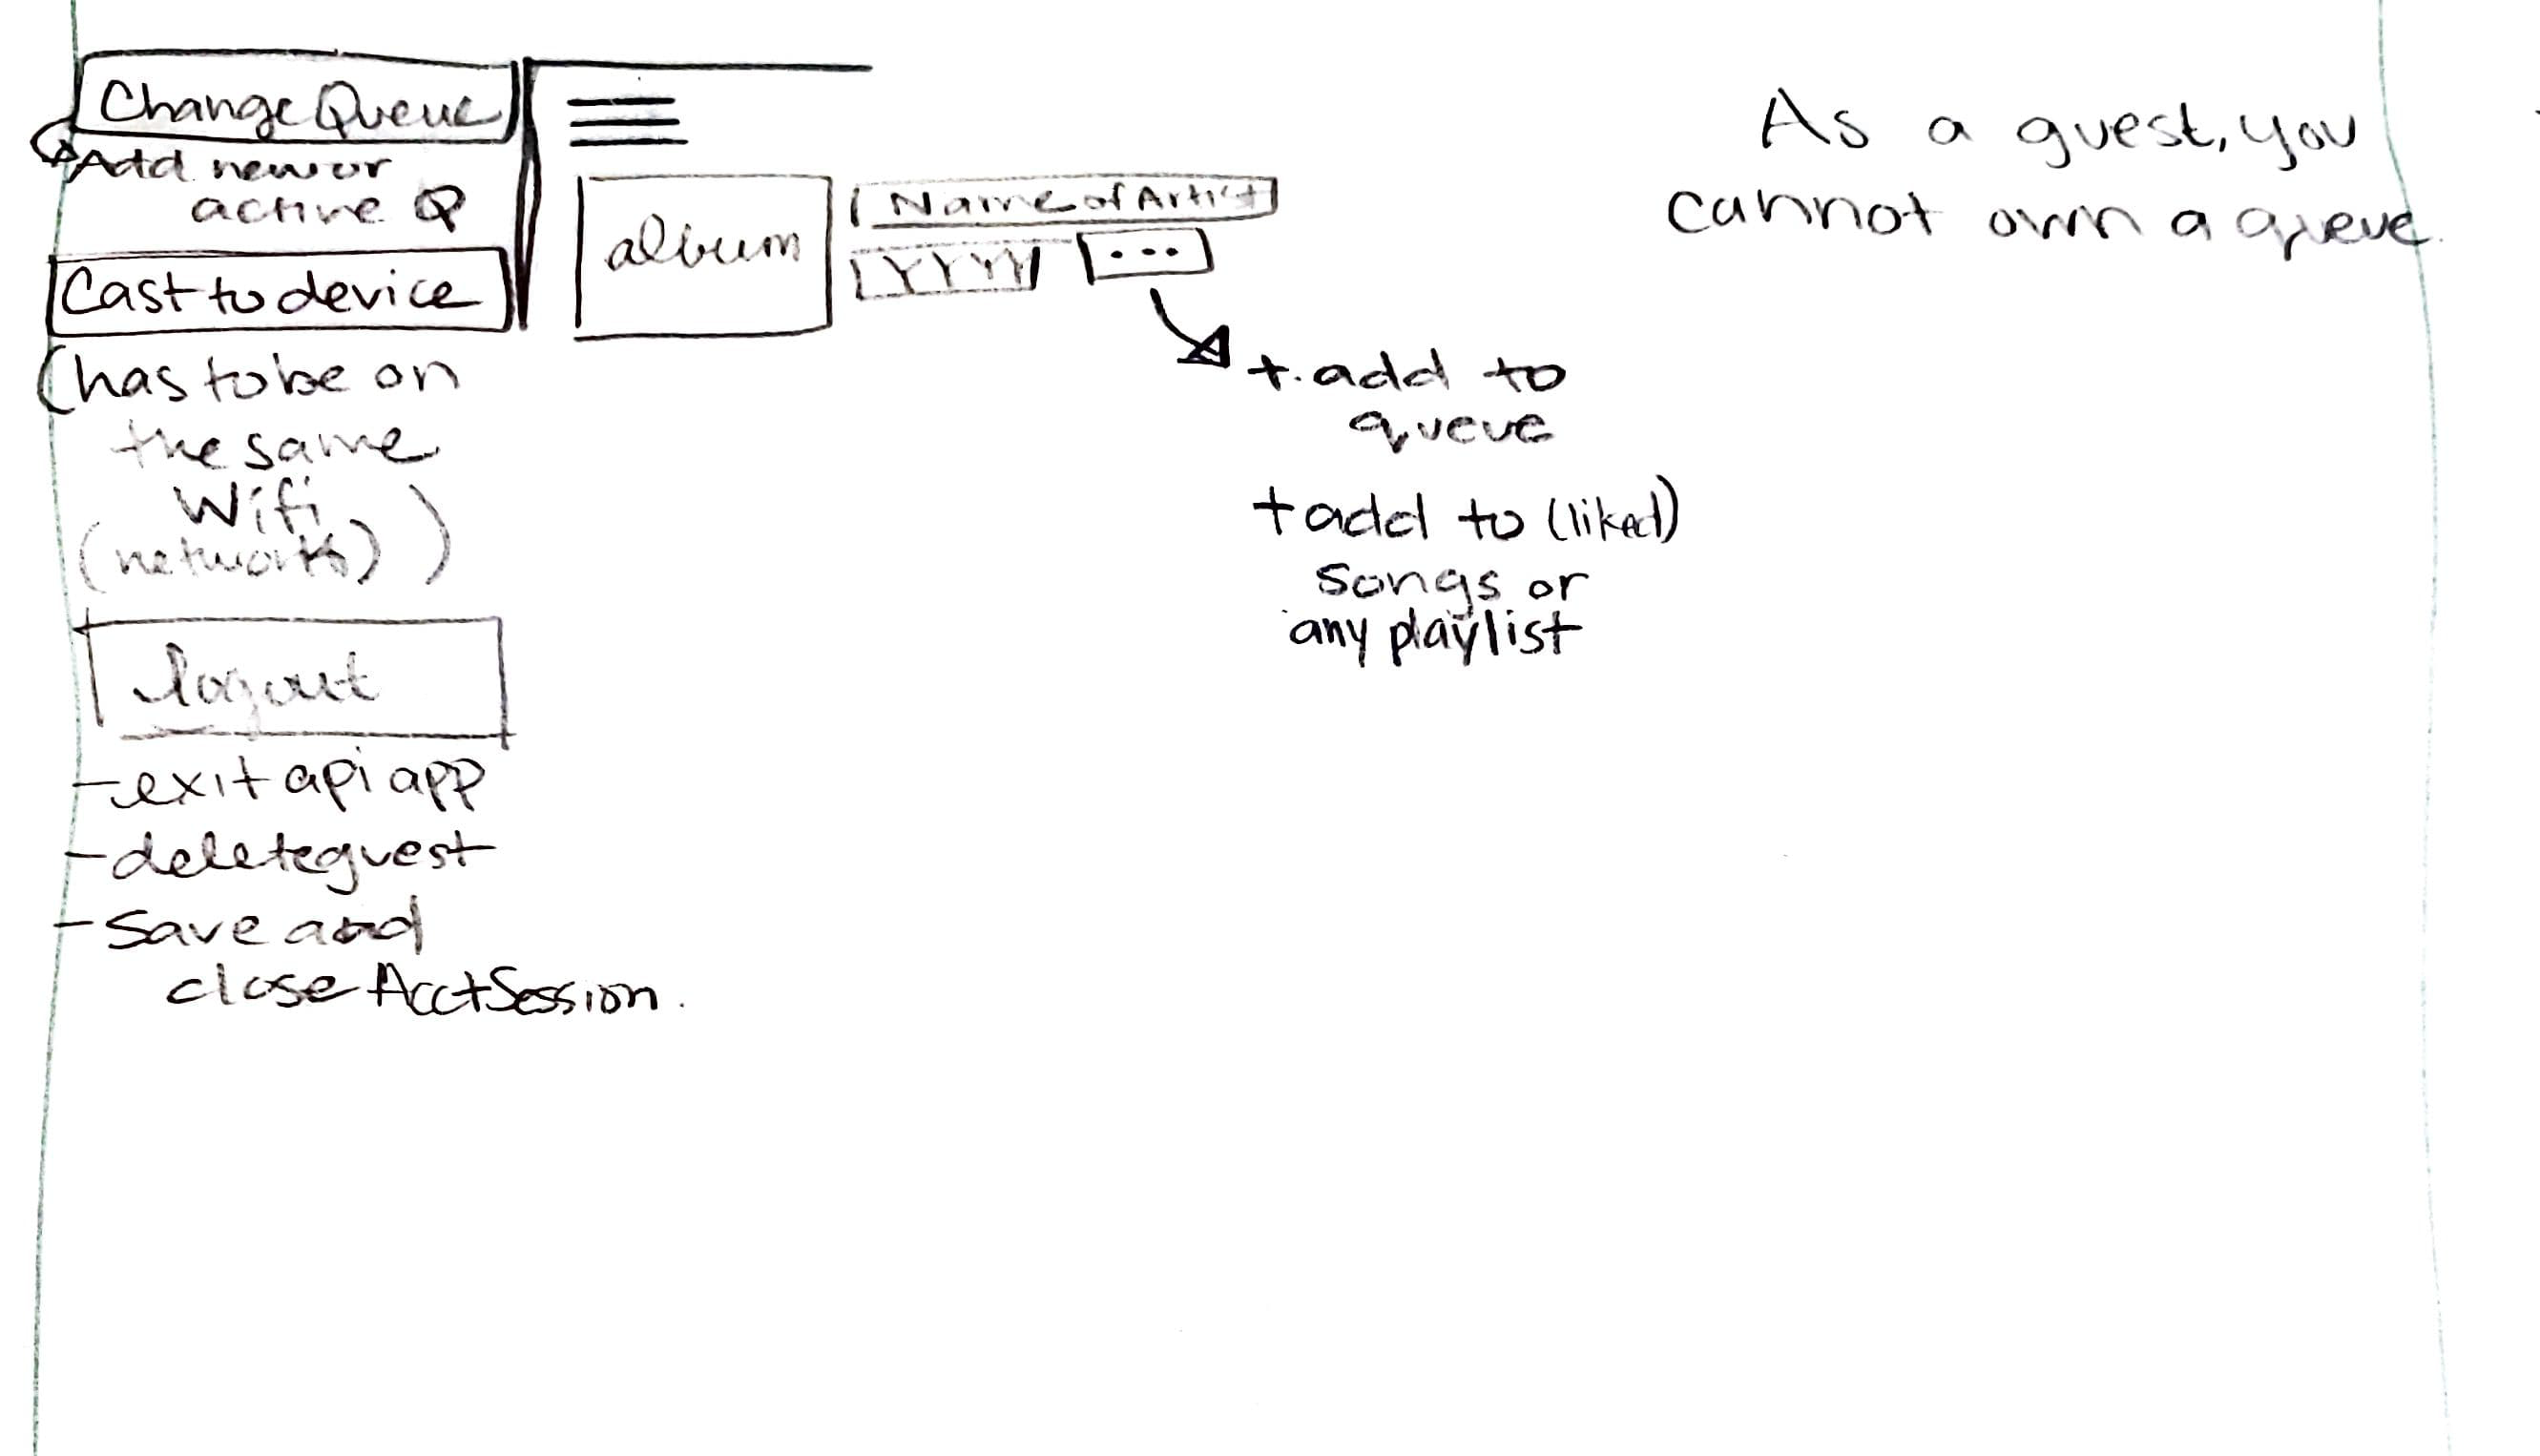 Change Queue
Add new or
active Q
Cast to device
(has to be on
the same
Wifi
(network) )
logout
- exit api app
- delete guest
- save and
close Acct Session.
album
Name of Artist
YYYY
...
+ add to
queue
+ add to (liked)
songs or
any playlist
As a guest, you
cannot own a queue.